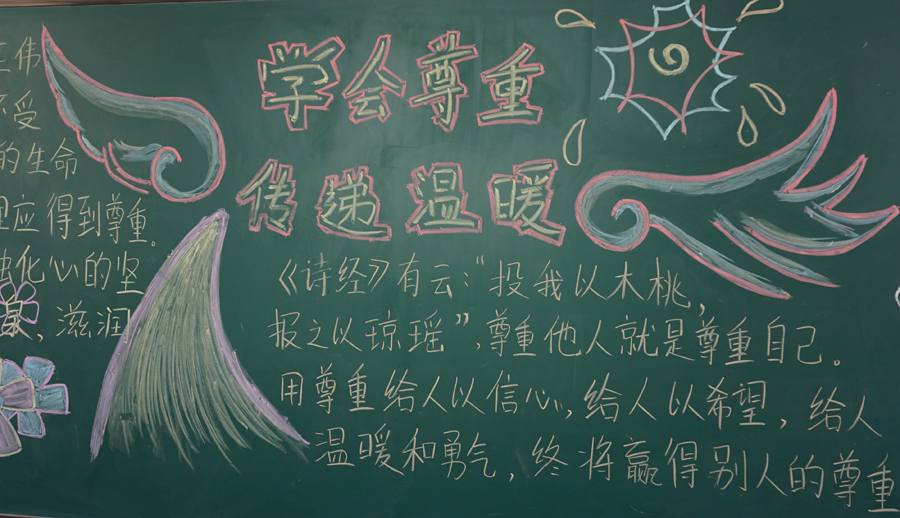 学会尊重
传递温暖
《诗经》有云：“投我以木桃，
报之以琼瑶”，尊重他人就是尊重自己。
用尊重给人以信心，给人以希望，给人
温暖和勇气，终将赢得别人的尊重
伟
受
的生命
应得到尊重。
化心的坚
、滋润